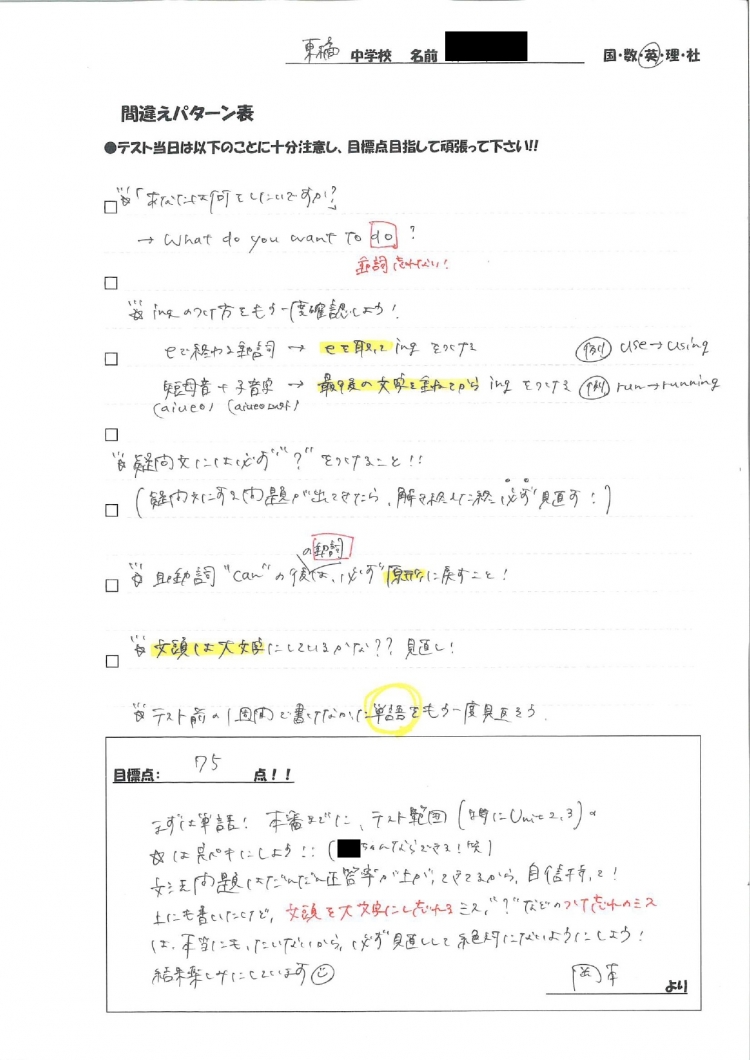 東稲 中学校 名前 国・数・英・理・社
間違えパターン表
●テスト当日は以下のことに十分注意し、目標点目指して頑張って下さい!!
「あなたは何をしたいですか?」
→ What do you want to do ?
動詞忘れない!
ingのつけ方をもう一度確認しよう!
eで終わる動詞 → eを取って ing をつける 例 use→using
短母音+子音字 → 最後の文字を重ねてから ing をつける 例 run→running
(aiueo) (aiueo以外)
疑問文には必ず"?"をつけること!!
(疑問文にする問題が出てきたら、解き終えた後必ず見直す!)
の動詞
助動詞"can"の後は、必ず原形に戻すこと!
文頭は大文字にしているかな??見直し!
テスト前の1週間で書けなかった単語をもう一度見直そう.
目標点: 75 点!!
まずは単語!本番までに、テスト範囲(特にUnit 2,3)の
☆は完ペキにしよう!!(ちゃんならできる!笑)
文法問題はだんだん正答率が上がってきてるから、自信持って!
上にも書いたけど、文頭を大文字にし忘れるミス,"?"などのつけ忘れのミス
は、本当にもったいないから、必ず見直しして絶対にないようにしよう!
結果楽しみにしています☺
岡本 より